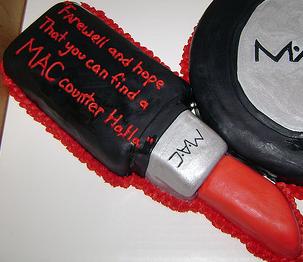 Farewell and hope
That you can find a
MAC counter HaHa"
MAC
MA